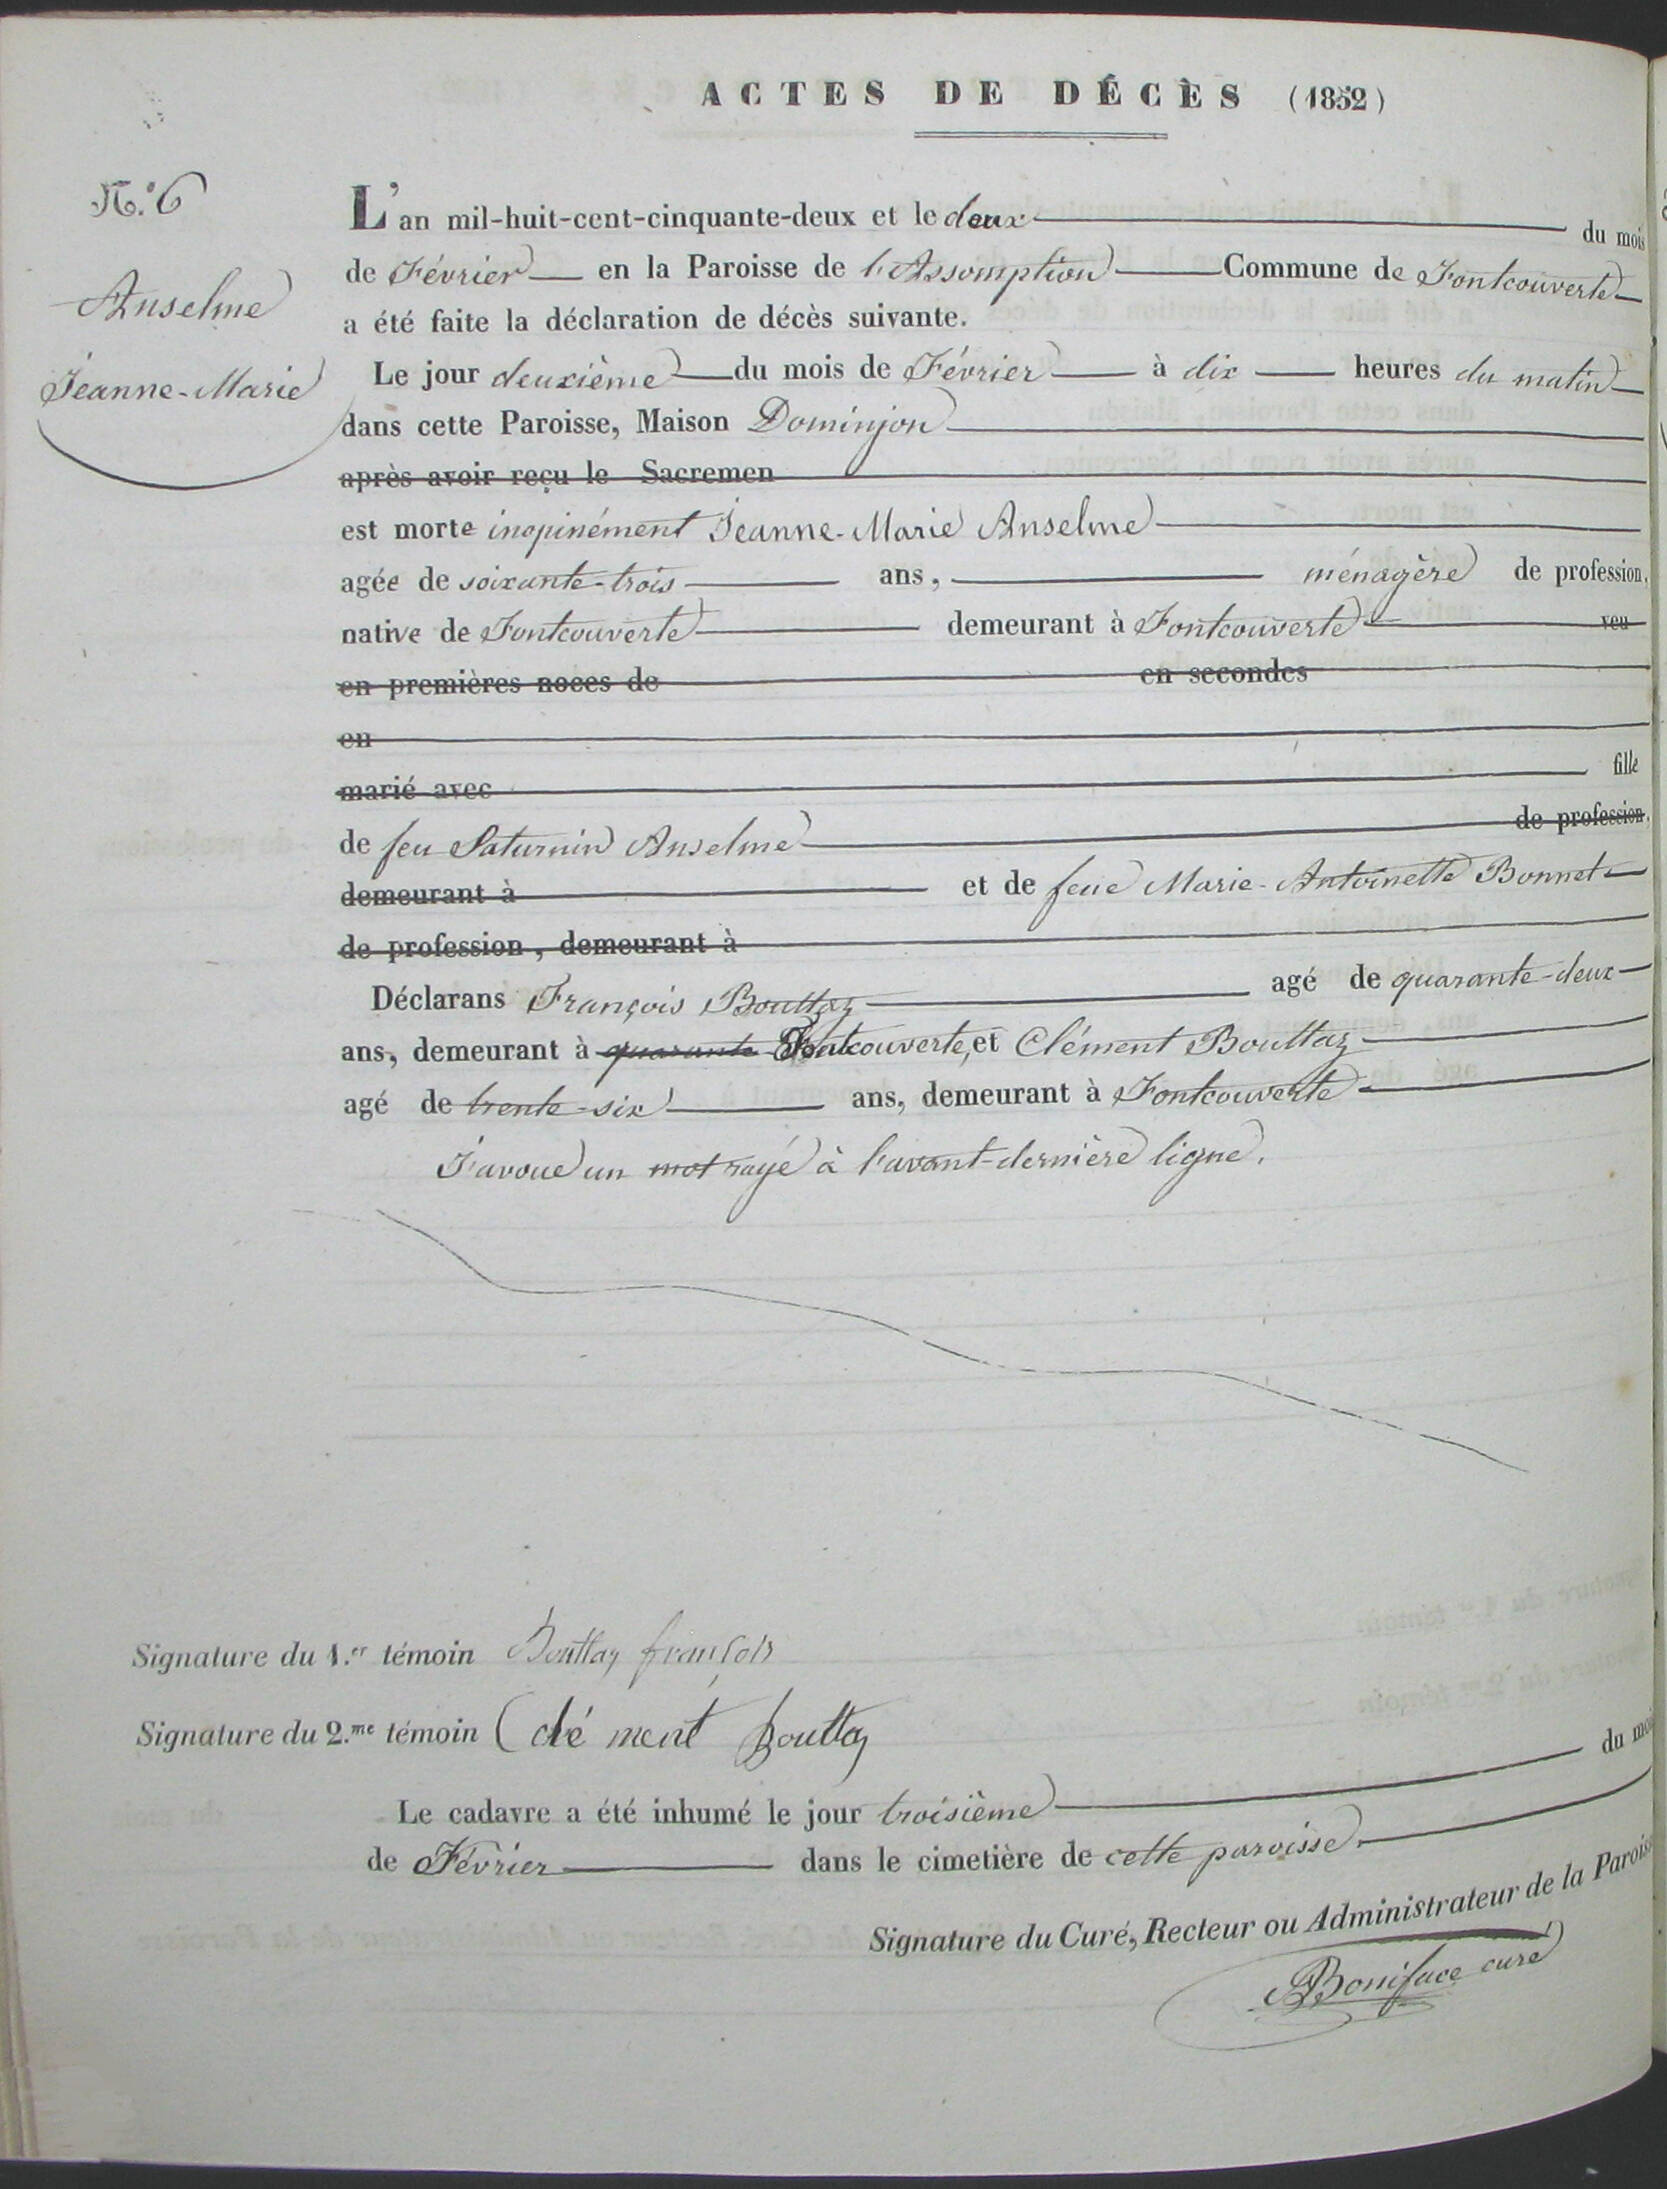 ACTES DE DÉCÈS (1852)
N.º 6
Anselme
Jeanne-Marie
L'an mil-huit-cent-cinquante-deux et le deux du mois
de Février en la Paroisse de l'Assomption Commune de Fontcouverte
a été faite la déclaration de décès suivante.
Le jour deuxième du mois de Février à dix heures du matin
dans cette Paroisse, Maison Dominjon
après avoir reçu le Sacremen
est morte inopinément Jeanne-Marie Anselme
agée de soixante-trois ans, ménagère de profession,
native de Fontcouverte demeurant à Fontcouverte veu
en premières noces de en secondes
en
marié avec fille
de feu Saturnin Anselme de profession,
demeurant à et de feue Marie-Antoinette Bonnet
de profession, demeurant à
Déclarans François Bouttaz agé de quarante-deux
ans, demeurant à quarante Fontcouverte, et Clément Bouttaz
agé de trente-six ans, demeurant à Fontcouverte
J'avoue un mot rayé à l'avant-dernière ligne.
Signature du 1.er témoin Bouttaz françois
Signature du 2.me témoin Clé ment Bouttaz
Le cadavre a été inhumé le jour troisième du moi
de Février dans le cimetière de cette paroisse.
Signature du Curé, Recteur ou Administrateur de la Parois
Boniface curé